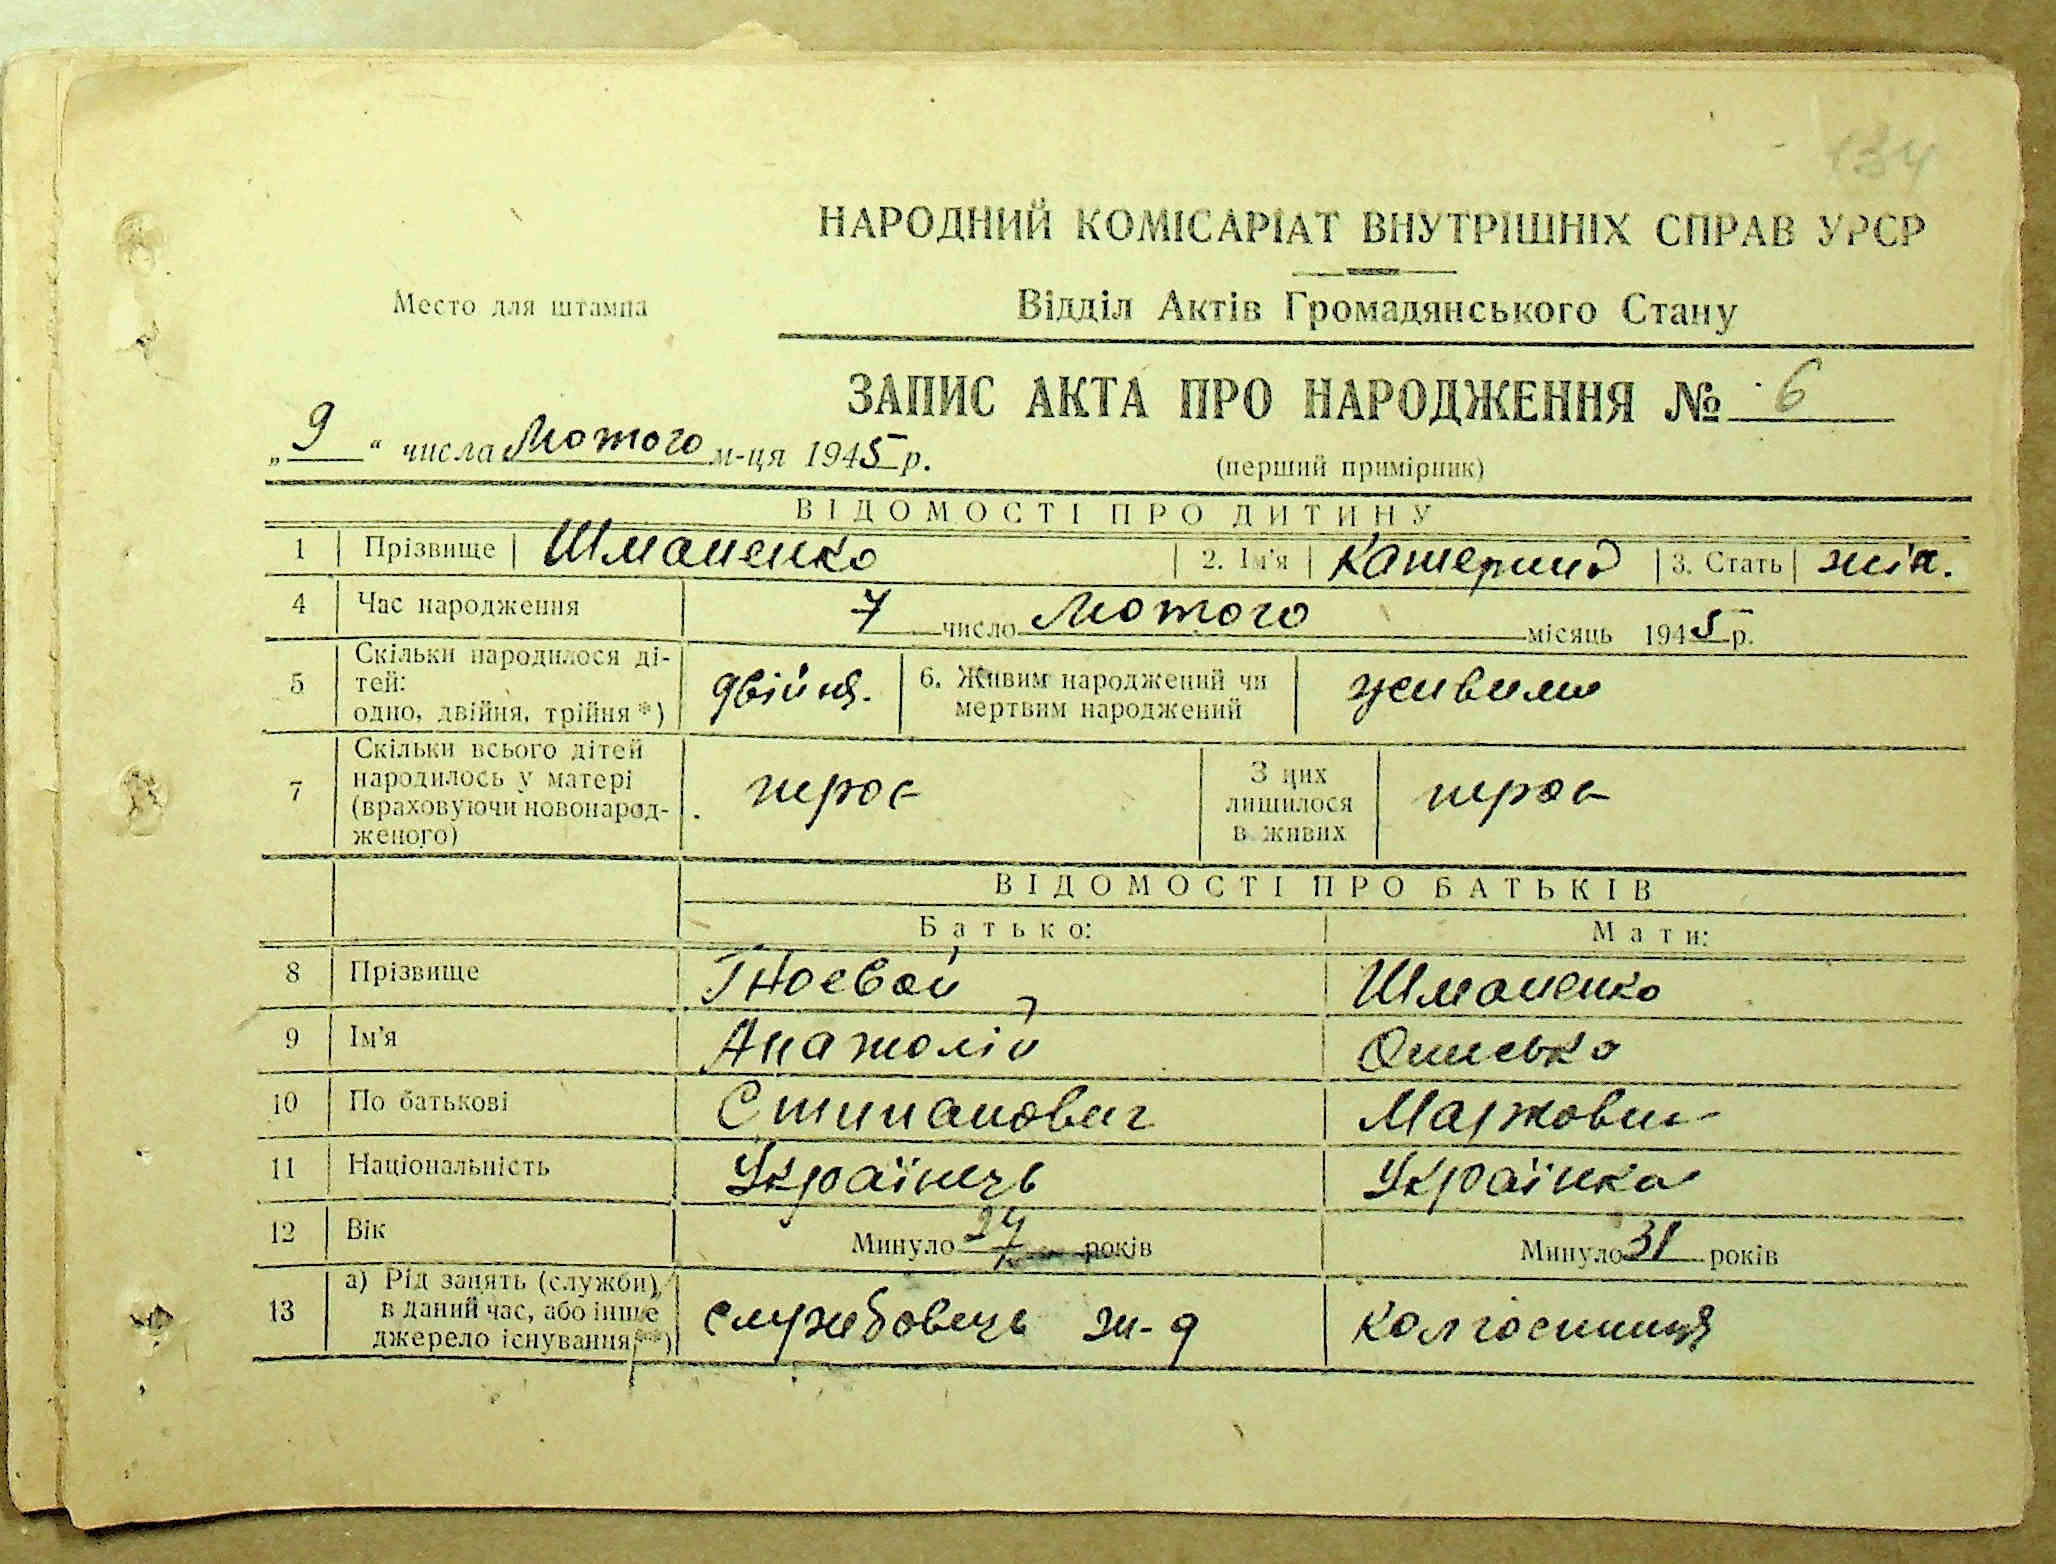 134
НАРОДНИЙ КОМІСАРІАТ ВНУТРІШНІХ СПРАВ УРСР
Место для штампа
Відділ Актів Громадянського Стану
ЗАПИС АКТА ПРО НАРОДЖЕННЯ № 6
„9“ числа Лютого м-ця 1945 р.
(перший примірник)
ВІДОМОСТІ ПРО ДИТИНУ
1 Прізвище Шманенко 2. Ім'я Катерина 3. Стать жін.
4 Час народження 7 число Лютого місяць 1945 р.
5 Скільки народилося ді-
тей:
одно, двійня, трійня*) двійня. 6. Живим народжений чи
мертвим народжений живими
7 Скільки всього дітей
народилось у матері
(враховуючи новонарод-
женого) троє З цих
лишилося
в живих троє
ВІДОМОСТІ ПРО БАТЬКІВ
Батько: Мати:
8 Прізвище Гноевой Шманенко
9 Ім'я Анатолій Ониська
10 По батькові Стипанович
11 Національність Українець Українка
12 Вік Минуло років Минуло 31 років
13 а) Рід занять (служби),
в даний час, або інше
джерело існування**) службовець ж-д колгоспниця